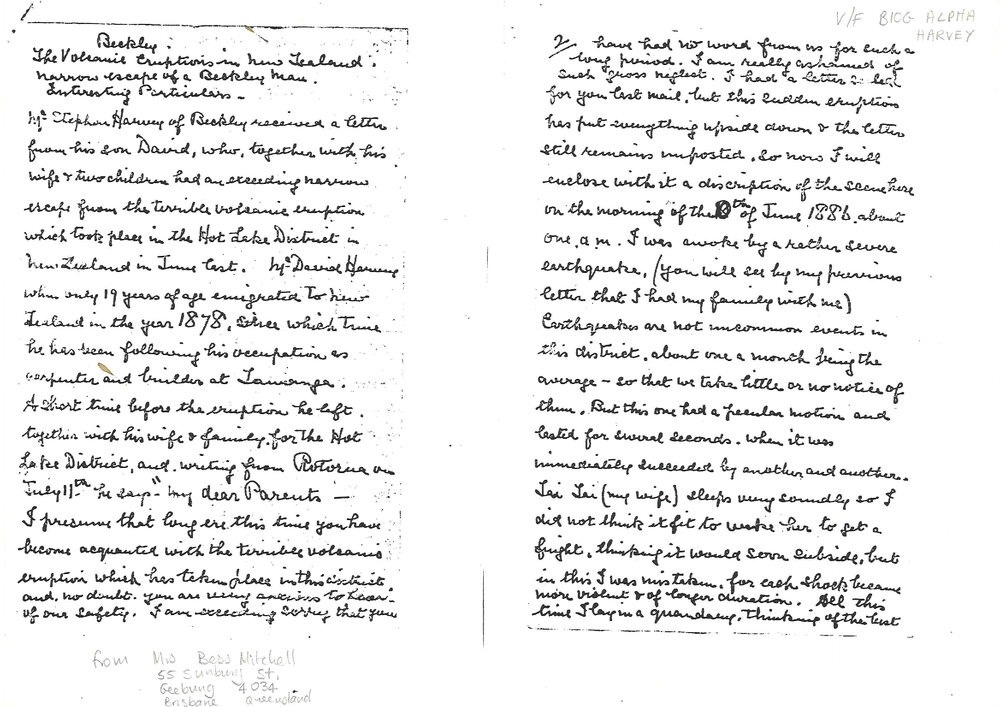 1/
Beckley.
The Volcanic Eruptions in New Zealand.
narrow escape of a Beckley man.
Interesting Particulars -
Mr Stephen Harvey of Beckley received a letter
from his son David, who, together with his
wife & two children had an exceeding narrow
escape from the terrible volcanic eruption
which took place in the Hot Lake District in
New Zealand in June last. Mr David Harvey
when only 19 years of age emigrated to New
Zealand in the year 1878, since which time
he has been following his occupation as
carpenter and builder at Tauranga.
A short time before the eruption he left.
together with his wife & family, for the Hot
Lake District, and writing from Rotorua on
July 11th he says - "my dear Parents -
I presume that long ere this time you have
become acquanted with the terrible volcanic
eruption which has taken place in this district
and, no doubt you are very anxious to hear
of our safety. I am exceeding sorry that you
from Mrs Bess Mitchell
55 Sunbury St,
Geebung 4034
Brisbane Queensland
V/F BIOG ALPHA
HARVEY
2/ have had no word from us for such a
long period. I am really ashamed of
such gross neglect. I had a letter
for you last mail, but this sudden eruption
has put everything upside down & the letter
still remains unposted. So now I will
enclose with it a discription of the scene here
on the morning of the 10th of June 1886, about
one, a.m. I was awoke by a rather severe
earthquake, (you will see by my previous
letter that I had my family with me)
Earthquakes are not uncommon events in
this district, about one a month being the
average - so that we take little or no notice of
them. But this one had a peculiar motion and
lasted for several seconds. when it was
immediately succeeded by another and another.
(my wife) sleeps very soundly so I
did not think it fit to wake her to get a
fright, thinking it would soon subside, but
in this I was mistaken, for each shock became
more violent & of longer duration. All this
time I lay in a quandary, thinking of the best